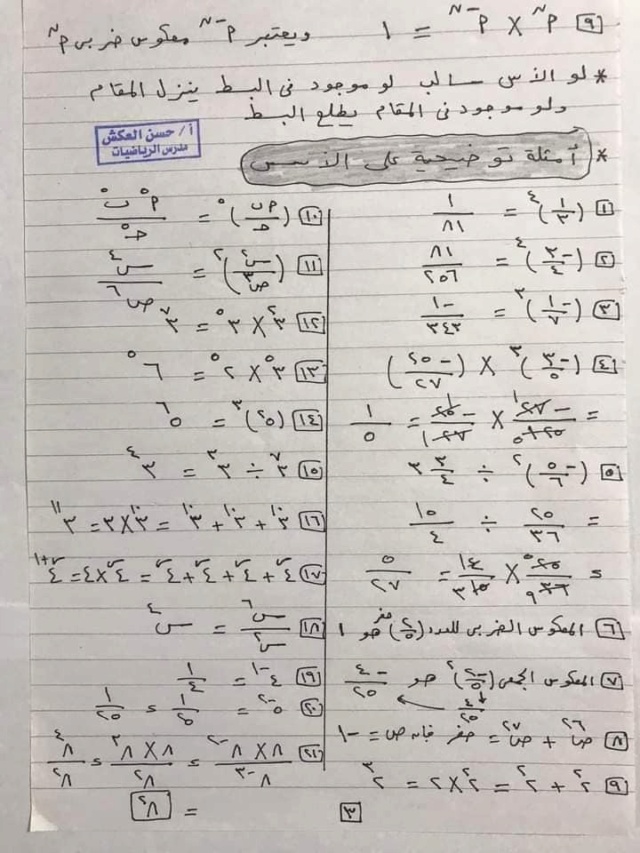 [٩] م^ن × م^-ن = ١ ويعتبر م^-ن معكوس ضربى م^ن
* لو الأس سالب لو موجود فى البسط ينزل المقام
ولو موجود فى المقام يطلع البسط
أ/ حسن العكش
مدرس الرياضيات
* أمثلة توضيحية على الأسس
[١] (١/٣)^٤ = ١/٨١
[٢] (-٣/٤)^٤ = ٨١/٢٥٦
[٣] (-١/٧)^٣ = -١/٣٤٣
[٤] (-٣/٥)^٣ × (-٢٥/٢٧)
= -٢٧/١٢٥ × -٢٥/٢٧ = ١/٥
[٥] (-٥/٦)^٢ ÷ ٣ ٣/٤
= ٢٥/٣٦ ÷ ١٥/٤
= ٢٥/٣٦ × ٤/١٥ = ٥/٢٧
[٦] المعكوس الضربى للعدد (٢/٥)^صفر هو ١
[٧] المعكوس الجمعى (-٢/٥)^٢ هو -٤/٢٥
٤/٢٥
[٨] ص^٢٦ + ص^٢٧ = صفر فإن ص = -١
[٩] ٢^٢ + ٢^٢ = ٢^٢ × ٢ = ٢^٣
[١٠] (م ب/جـ)^٥ = م^٥ ب^٥/جـ^٥
[١١] (س^٢/ص^٣)^٢ = س^٤/ص^٦
[١٢] ٣^٢ × ٣^٥ = ٣^٧
[١٣] ٣^٥ × ٢^٥ = ٦^٥
[١٤] (٥^٢)^٣ = ٥^٦
[١٥] ٣^٧ ÷ ٣^٣ = ٣^٤
[١٦] ٣^١٠ + ٣^١٠ + ٣^١٠ = ٣^١٠ × ٣ = ٣^١١
[١٧] ٤^س + ٤^س + ٤^س + ٤^س = ٤^س × ٤ = ٤^س+١
[١٨] س^٦/س^٢ = س^٤
[١٩] ٤^-١ = ١/٤
[٢٠] ٥^-٢ = ١/٥^٢ = ١/٢٥
[٢١] ٨ × ٨^-٢/٨^-٣ = ٨ × ٨^٣/٨^٢ = ٨^٤/٨^٢
= ٨^٢
[٣]